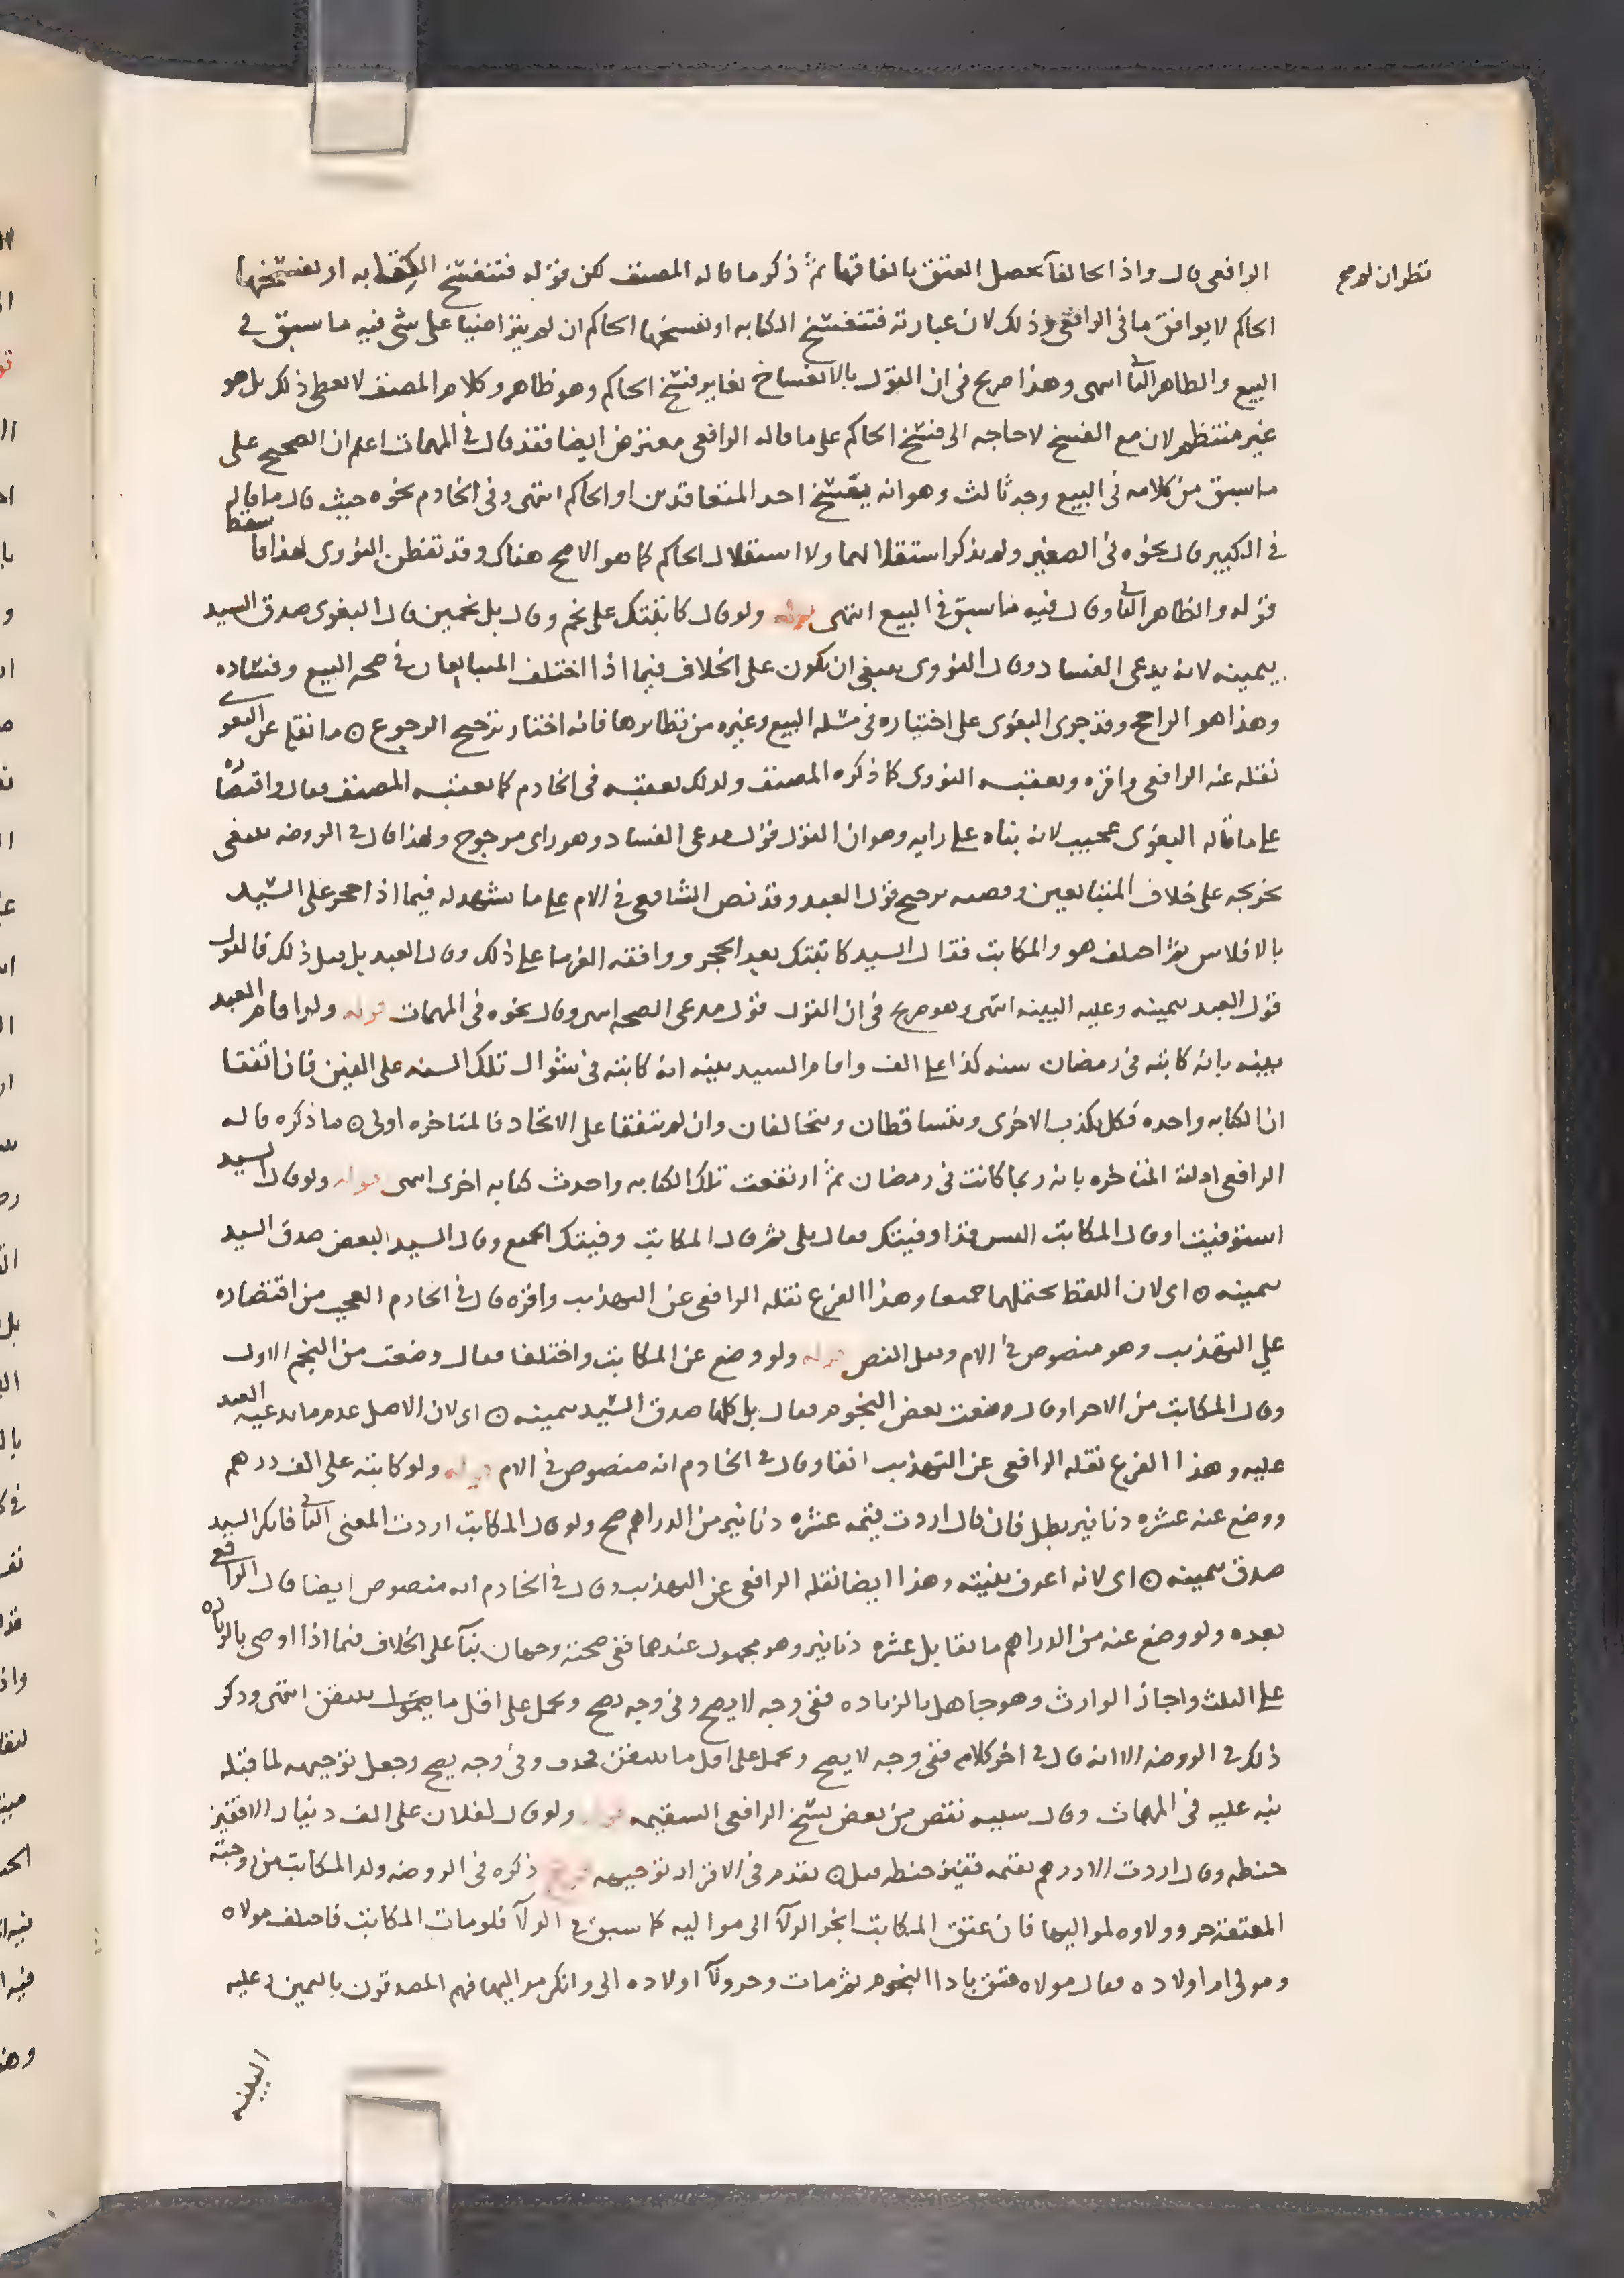 الرافعي قال واذا تحالفا يحصل العتق باتفاقهما ثم ذكر ما قاله المصنف لكن قوله فتنفسخ الكتابه او يفسخها
الحاكم لا يوافق ما في الرافعي وذلك لان عبارته فتنفسخ الكتابه او يفسخها الحاكم ان لم يتراضيا على شي فيه ما سبق في
البيع والظاهر الثاني انتهى وهذا صريح في ان القول بالانفساخ يغاير فسخ الحاكم وهو ظاهر وكلام المصنف لا يعطي ذلك بل هو
غير منتظم لان مع الفسخ لا حاجه الى فسخ الحاكم على ما قاله الرافعي معترض ايضا فقد قال في المهمات اعلم ان الصحيح على
ما سبق من كلامه في البيع وجه ثالث وهو انه يفسخ احد المتعاقدين او الحاكم انتهى وفي الخادم نحوه حيث قال ما قاله
في الكبير قال نحوه في الصغير ولم يذكر استقلالهما ولا استقلال الحاكم كما هو الاصح هناك وقد تفطن النووي لهذا فاسقط
قوله والظاهر الثاني وقال فيه ما سبق في البيع انتهى قوله ولو قال كاتبتك على نجم وقال بل نجمين قال البغوي صدق السيد
بيمينه لانه يدعي الفساد وقال النووي ينبغي ان يكون على الخلاف فيما اذا اختلف المتبايعان في صحه البيع وفساده
وهذا هو الراجح وقد جرى البغوي على اختياره في مسله البيع وغيره من نظايرها فانه اختار ترجيح الرجوع ۞ ما نقله عن البغوي
نقله عنه الرافعي واقره وتعقبه النووي كما ذكره المصنف ولذلك تعقبه في الخادم كما تعقبه المصنف فقال واقتصاره
على ما قاله البغوي عجيب لانه بناه على رايه وهو ان القول قول مدعي الفساد وهو راي مرجوح ولهذا قال في الروضه ينبغي
تخريجه على خلاف المتبايعين وقضيته ترجيح قول العبد وقد نص الشافعي في الام على ما يشهد له فيما اذا حجر على السيد
بالافلاس ثم اختلف هو والمكاتب فقال السيد كاتبتك بعد الحجر ووافقه الغرما على ذلك وقال العبد بل قبل ذلك فالقول
قول العبد بيمينه وعليه البينه انتهى وهو صريح في ان القول قول مدعي الصحه انتهى وقال نحوه في المهمات قوله ولو اقام العبد
بينه بانه كاتبه في رمضان سنه كذا على الف واقام السيد بينه انه كاتبه في شوال تلك السنه على الفين فان اتفقا
ان الكتابه واحده فكل يكذب الاخرى ويتساقطان ويتحالفان وان لم يتفقا على الاتحاد فالمتاخره اولى ۞ ما ذكره قاله
الرافعي ادلة المتاخره بانه ربما كانت في رمضان ثم ارتفعت تلك الكتابه واحدث كتابه اخرى انتهى قوله ولو قال السيد
استوفيت او قال المكاتب اليس قد اوفيتك فقال بلى ثم قال المكاتب وفيتك الجميع وقال السيد البعض صدق السيد
بيمينه ۞ اي لان اللفظ يحتملهما جميعا وهذا الفرع نقله الرافعي عن التهذيب واقره قال في الخادم العجب من اقتصاره
على التهذيب وهو منصوص في الام ونقل النص قوله ولو وضع عن المكاتب واختلفا فقال وضعت من النجم الاول
وقال المكاتب من الاخر او قال وضعت بعض النجوم فقال بل كلها صدق السيد بيمينه ۞ اي لان الاصل عدم ما يدعيه العبد
عليه وهذا الفرع نقله الرافعي عن التهذيب ايضا وقال في الخادم انه منصوص في الام قوله ولو كاتبه على الف درهم
ووضع عنه عشره دنانير بطل فان قال اردت قيمه عشره دنانير من الدراهم صح ولو قال المكاتب اردت المعنى الثاني فانكر السيد
صدق بيمينه ۞ اي لانه اعرف بنيته وهذا ايضا نقله الرافعي عن التهذيب وقال في الخادم انه منصوص ايضا قال الرافعي
بعده ولو وضع عنه من الدراهم ما يقابل عشره دنانير وهو مجهول عندهما ففي صحته وجهان بنآ على الخلاف فيما اذا اوصى بالزياده
على الثلث واجاز الوارث وهو جاهل بالزياده ففي وجه لا يصح وفي وجه يصح ويحمل على اقل ما يتيقن انتهى وذكر
ذلك في الروضه الا انه قال في اخر كلامه ففي وجه لا يصح ويحمل على اقل ما يتيقن فحذف وفي وجه يصح وجعل توجيهه لما قبله
نبه عليه في المهمات وقال سببه نقص من بعض نسخ الرافعي السقيمه قوله ولو قال لفلان على الف دينار الا قفيز
حنطه وقال اردت الا درهم بقيمه قفيز حنطه قبل ۞ تقدم في الاقرار توجيهه فرع ذكره في الروضه ولد المكاتب من زوجته
المعتقه حر وولاوه لمواليها فان عتق المكاتب انجر الولآ الى مواليه كما سبق في الولآ فلو مات المكاتب فاختلف مولاه
ومولى ام اولاده فقال مولاه عتق باداء النجوم ثم مات وجر ولآ اولاده الي وانكر مواليها فهم المصدقون باليمين وعليه
البينه